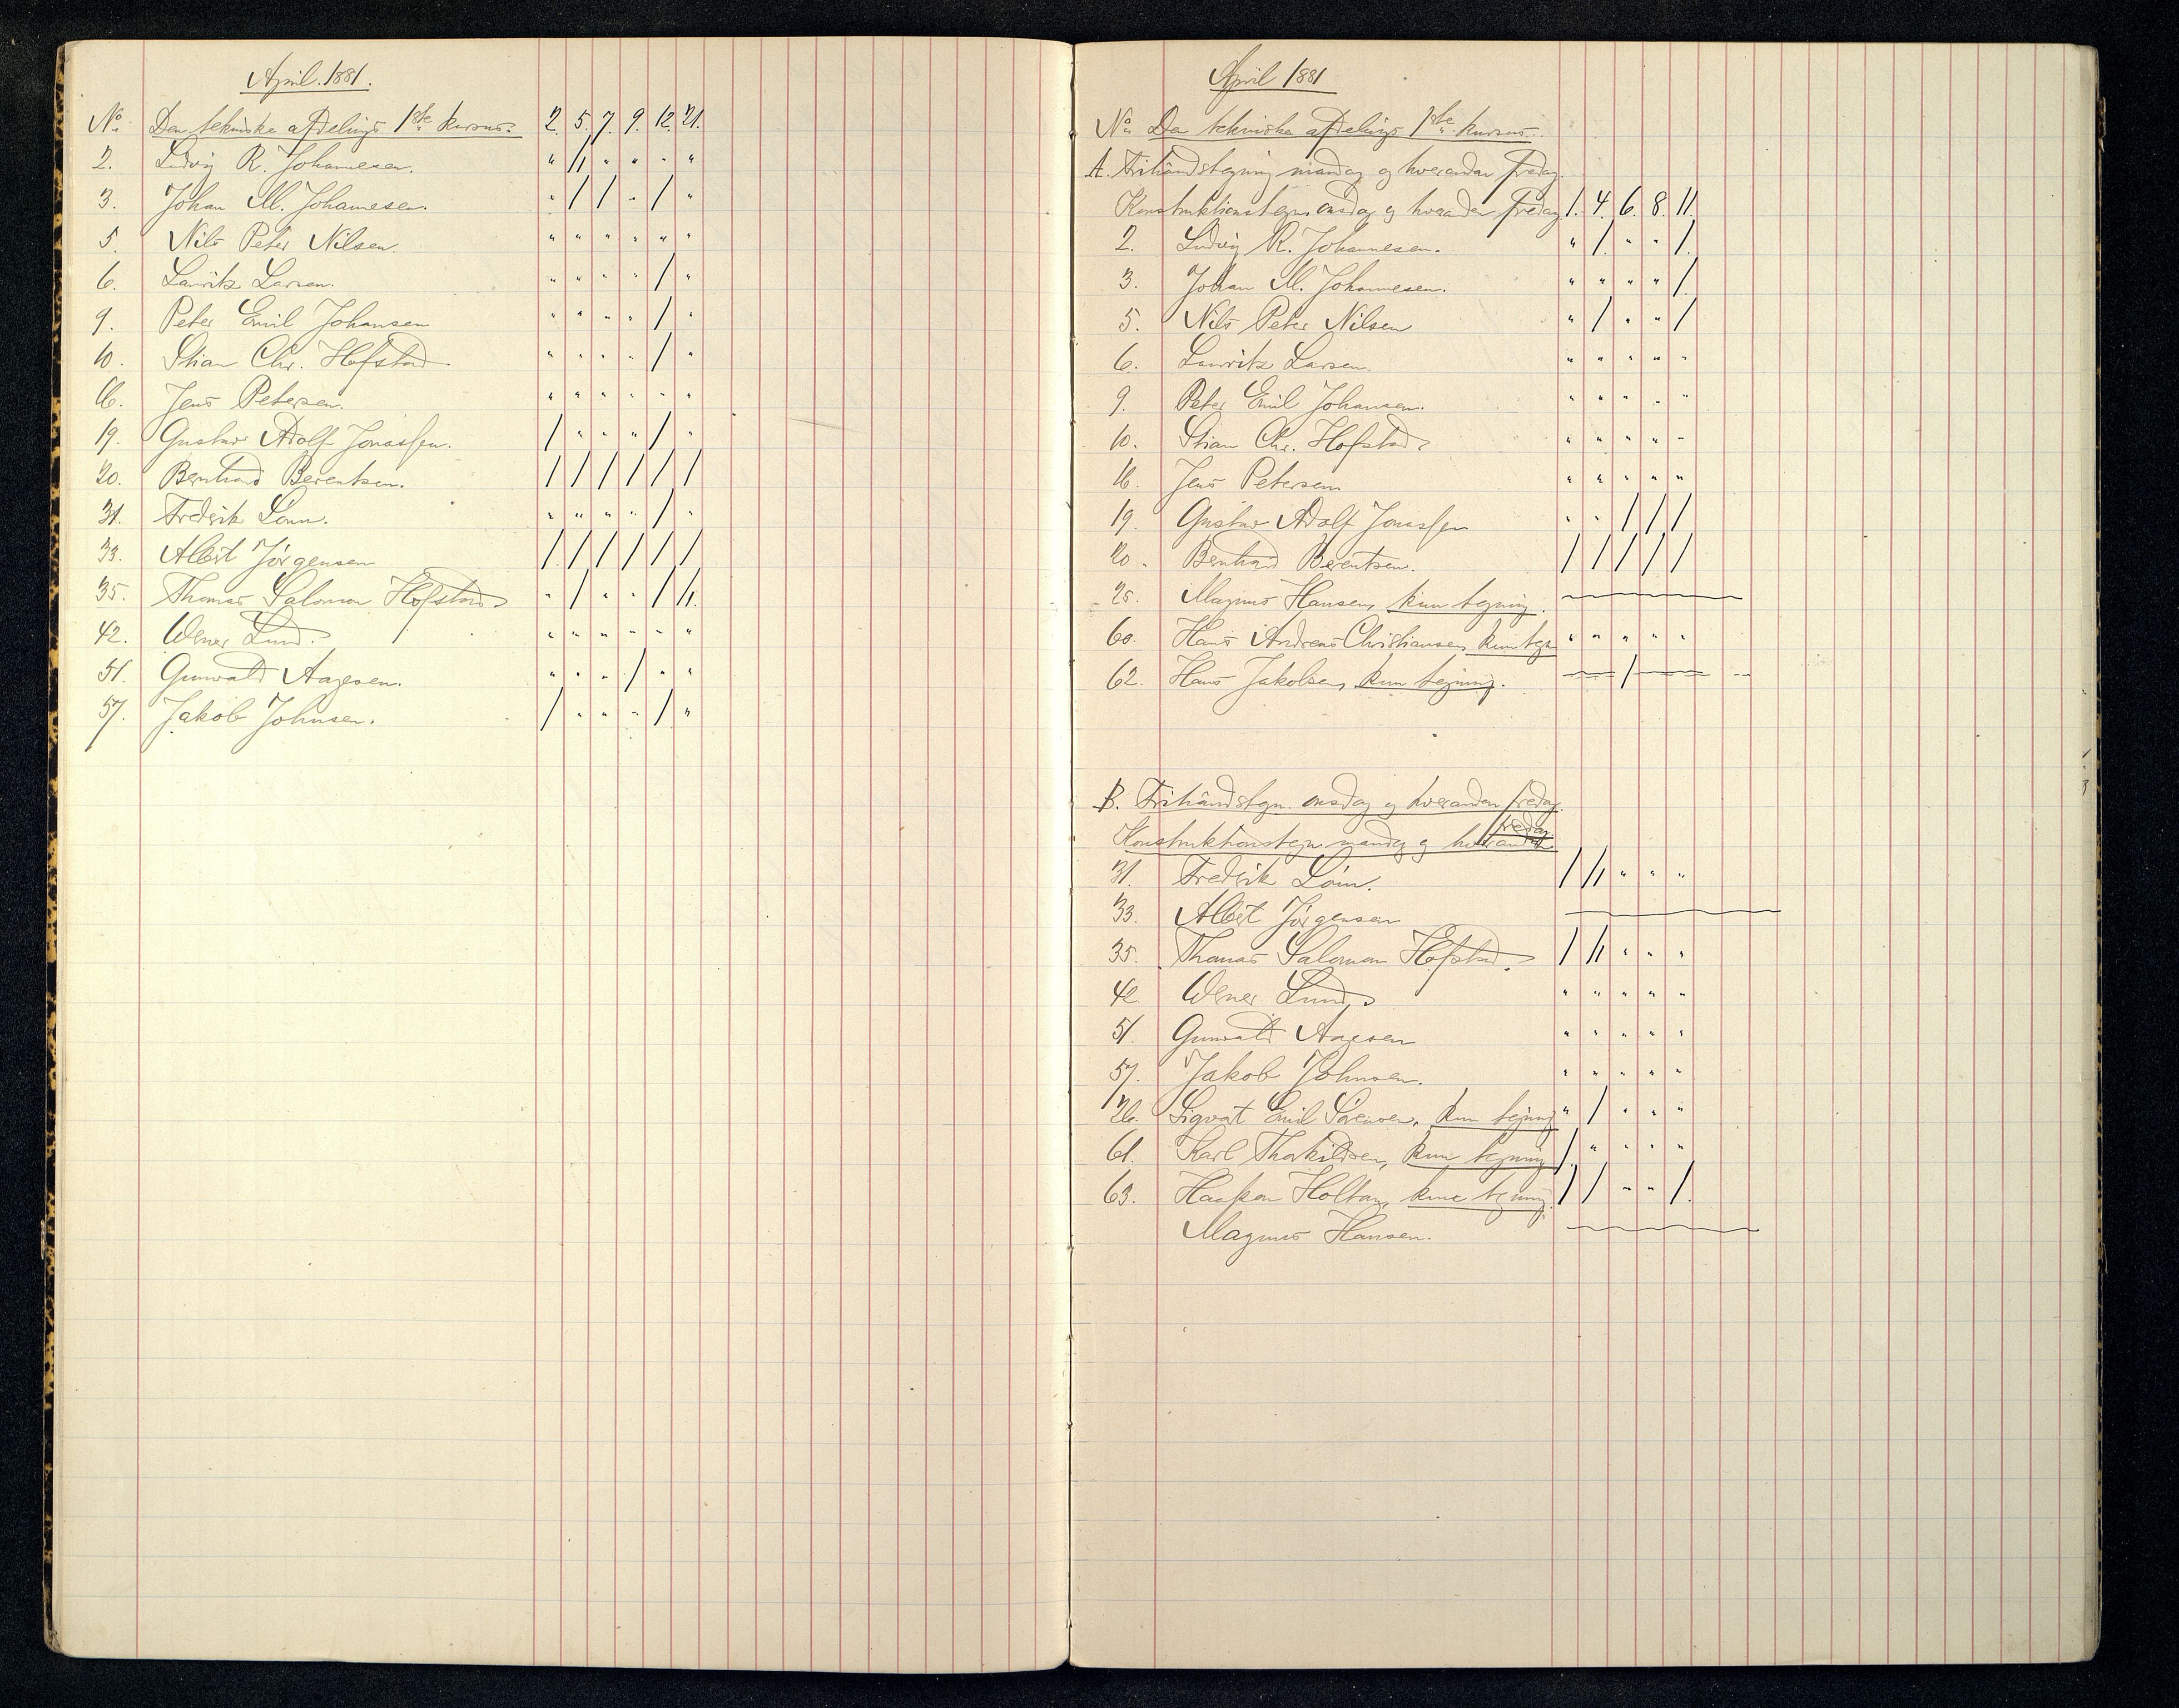 April. 1881.
No. Den tekniske afdelings 1ste kursus. 2. 5. 7. 9. 12. 21.
2. Ludvig R. Johannesen. " // " " " "
3. Johan M. Johannesen. " / / " / "
5. Nils Peter Nilsen. " " " " " "
6. Lauritz Larsen. " " " " / "
9. Peter Emil Johansen " " " " / "
10. Stian Chr. Hofstad " " " " / "
16. Jens Petersen. " " " " " "
19. Gustav Adolf Jonassen. / " " " / "
20. Bernhard Berentsen. / / / / / /
31. Fredrik Lorn. " " " " / "
33. Albert Jørgensen / / / / / /
35. Thomas Salomon Hofstad " / " " / //.
42. Werner Lund. " " " " " "
51. Gunvald Aagesen. " " " / " "
57. Jakob Johnsen. / " " " / "
April 1881
No. Den tekniske afdelings 1ste kursus.
A. Frihåndstegning mandag og hveranden fredag.
Konstruktionstegn. onsdag og hveranden fredag 1. 4. 6. 8. 11.
2. Ludvig R. Johannesen. " / " " /
3. Johan M. Johannesen. " " " " /
5. Nils Peter Nilsen " / " " /
6. Lauritz Larsen. " " " " "
9. Peter Emil Johansen. " " " " "
10. Stian Chr. Hofstad " " " " "
16. Jens Petersen " " " " "
19. Gustav Adolf Jonassen " " / / /
20. Bernhard Berentsen. / / / / /
25. Magnus Hansen, kun tegning.
60. Hans Andreas Christiansen, kun tegn " " " " "
62. Hans Jakobsen, kun tegning. /
B. Frihåndstegn. onsdag og hveranden fredag.
Konstruktionstegn. mandag og hveranden fredag.
31. Fredrik Lorn. / // " " "
33. Albert Jørgensen
35. Thomas Salomon Hofstad. / // " " "
42. Werner Lund. " " " " "
51. Gunvald Aagesen " " " " "
57. Jakob Johnsen. " " " " "
26. Sigvat Emil Sørensen, kun tegning " / " " "
61. Karl Thorkildsen, kun tegning / " " " "
63. Haakon Holtan, kun tegning. / / " " /.
Magnus Hansen.